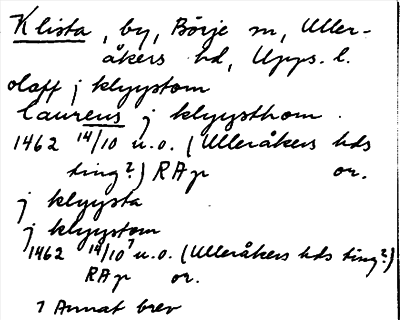 Klista, by, Börje sn, Uller-
åkers hd, Upps. l.
olaff j klyystom
laureus j klyysthom.
1462 14/10 u.o. (Ulleråkers hds
ting?) RAp or.
j klyysta
j klyystom
1462 14/10 1 u.o. (Ulleråkers hds ting?)
RAp or.
1 Annat brev